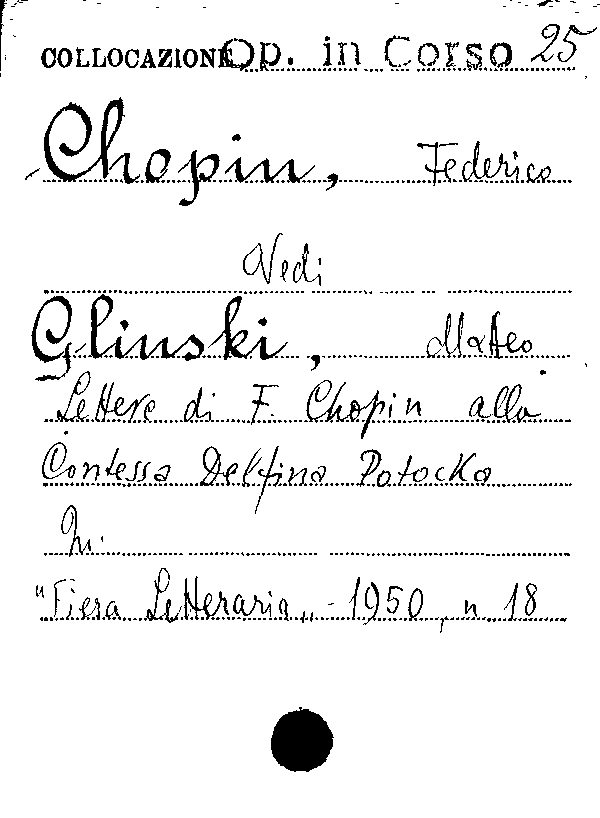 COLLOCAZIONE Op. in Corso 25
Chopin, Federico
Vedi
Glinski, Mateo
Lettere di F. Chopin alla
Contessa Delfina Potocka
In:
"Fiera Letteraria„ - 1950, n 18